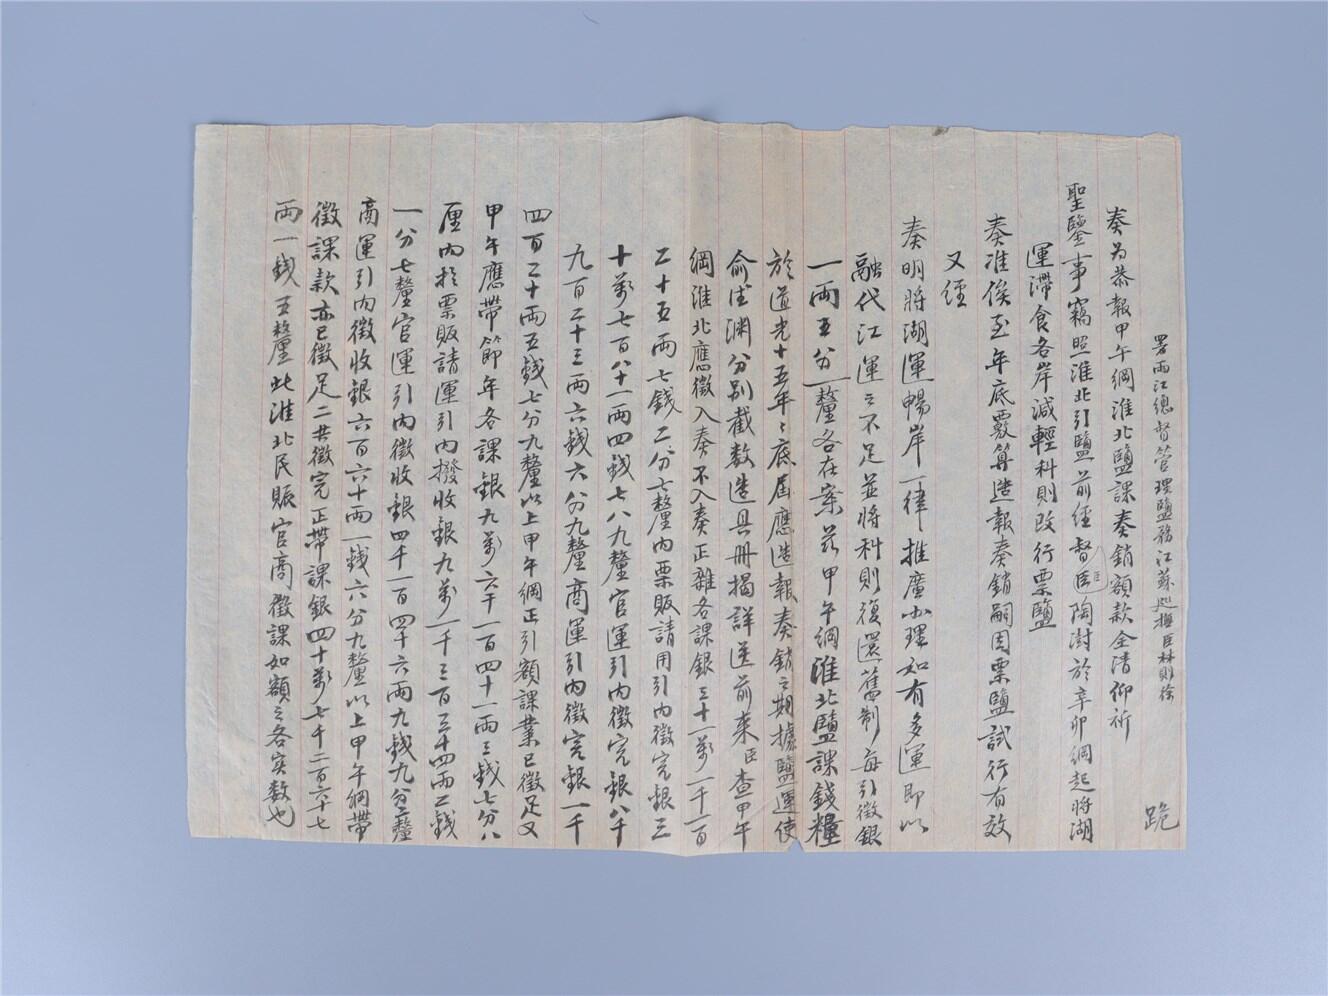 署兩江總督管理鹽務江蘇巡撫臣林則徐
跪
奏為恭報甲午綱淮北鹽課奏銷額款全清仰祈
聖鑒事竊照淮北引鹽前經督臣陶澍於辛卯綱起將湖
運滯食各岸減輕科則改行票鹽
奏准俟至年底覈算造報奏銷嗣因票鹽試行有效
又經
奏明將湖運暢岸一律推廣办理如有多運即以
融代江運之不足並將科則復還舊制每引徵銀
一兩五分一釐各在案茲甲午綱淮北鹽課錢糧
於道光十五年年底屆應造報奏銷之期據鹽運使
俞德渊分別截数造具冊揭詳送前来臣查甲午
綱淮北應徵入奏不入奏正雜各課銀三十一萬一千一百
二十五兩七錢二分七釐内票販請用引内徵完銀三
十萬七百八十一兩四錢七八九釐官運引内徵完銀八千
九百二十三兩六錢六分九釐商運引内徵完銀一千
四百二十兩五錢七分九釐以上甲午綱正引額課業已徵足又
甲午應帶節年各課銀九萬六千一百四十一兩三錢七分八
厘内於票販請運引内撥收銀九萬一千三百三十四兩二錢
一分七釐官運引内徵收銀四千一百四十六兩九錢九分二釐
商運引内徵收銀六百六十兩一錢六分九釐以上甲午綱帶
徵課款亦已徵足二共徵完正帶課銀四十萬七千二百六十七
兩一錢五釐此淮北民贩官商徵課如額之各实数也